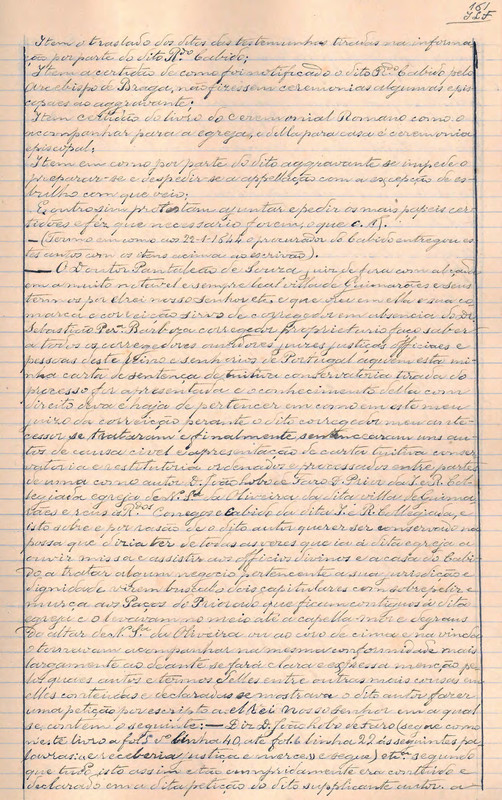 161
Item o traslado dos ditos das testemunhas tiradas na informa
ção por parte do dito R.do Cabido;
Item a certidão de como foi notificado o dito R.do Cabido pelo
Arcebispo de Braga, não fizessem ceremonias algumas epis
copaes ao aggravante;
Item certidão do livro do Ceremonial Romano como o
acompanhar para a egreja, e della para casa é ceremonia
episcopal;
Item em como por parte do dito aggravante se impede o
preparar-se e despedir-se a appellação com a excepção de es-
bulho com que veio;
E outrosim protestam ajuntar e pedir os mais papeis cer
tidões e fés que necessario forem, o que
— (Termo em como aos 22-1-1644 o procurador do Cabido entregou es
tes autos com os itens acima ao escrivão).
— O Doutor Pantaleão de Souza, juiz de fora com alçada
em a muito notavel e sempre leal villa de Guimarães e seus
termos por elrei nosso senhor etc, e que
marca e correição sirvo de corregedor em absencia do Dr.
Sebastião Per.a Barboza corregedor proprietario faço saber
a todos os corregedores ouvidores, juizes justiças, officiaes e
pessoas deste reino e senhorios de Portugal a quem esta mi
nha carta de sentença de tuitiva conservatoria tirada do
processo for apresentada e o conhecimento della com
direito deva e haja de pertencer em como em este meu
juizo da correição perante o dito corregedor meu ante
cessor se trataram e finalmente sentenceram uns au
tos de causa civel e apresentação de carta tuitiva conser
vatoria e restitutoria ordenados e processados entre partes
de uma como autor D. João Lobo de Faro D. Prior da I. e R. Col
legiada egreja de N.a S.ra da Oliveira da dita villa de Guima
rães e reos os R.dos Conegos e Cabido da dita I. e R. Collegiada, e
isto sobre e por rasão de o dito autor querer ser conservado na
posse que dizia ter de todas as vezes que ia á dita egreja a
ouvir missa e assistir aos officios divinos e a casa do Cabi
do, a tratar algum negocio pertencente a sua jurisdição e
dignidade virem busca-lo dois capitulares com sobrepeliz e
murça aos Paços do Priorado que ficam contiguos á dita
egreja e o levavam no meio até á capella-mór e degraus
do altar de N.a S.ra da Oliveira ou ao coro de cima e na vinda
o tornavam acompanhar na mesma conformidade mais
largamente ao deante se fará clara e expressa menção, pe
los quaes autos e termos delles entre outras mais cousas em
elles conteudas e declaradas se mostrava o dito autor fazer
uma petição por escripto a elrei nosso senhor em a qual
se contem o seguinte: — Diz D. João Lobo de Faro (segue como
neste livro a fol. v.o linha 10 até fol 6 linha 22 ás seguintes pa
lavras: e receberia justiça e mercê e segue) etc. segundo
que tudo isto assim e tão compridamente era conteudo e
declarado em a dita petição do dito supplicante autor, a-